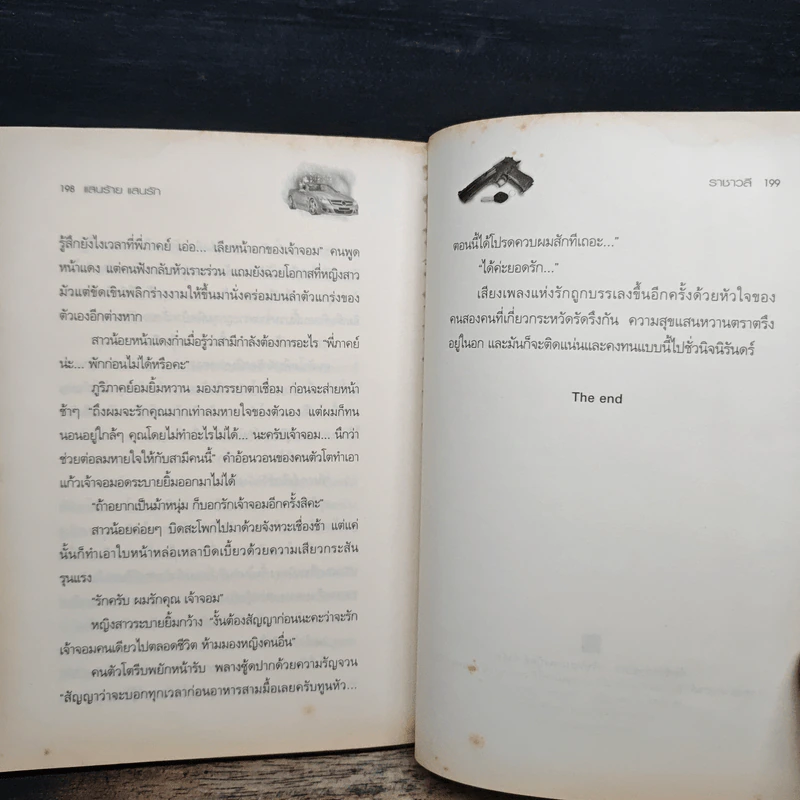 198 แสนร้าย แสนรัก
รู้สึกยังไงเวลาที่พี่ภาคย์ เอ่อ... เลียหน้าอกของเจ้าจอม” คนพูด
หน้าแดง แต่คนฟังกลับหัวเราะร่วน แถมยังฉวยโอกาสที่หญิงสาว
มัวแต่ขัดเขินพลิกร่างงามให้ขึ้นมานั่งคร่อมบนลำตัวแกร่งของ
ตัวเองอีกต่างหาก
สาวน้อยหน้าแดงก่ำเมื่อรู้ว่าสามีกำลังต้องการอะไร “พี่ภาคย์
น่ะ... พักก่อนไม่ได้หรือคะ”
ภูริภาคย์อมยิ้มหวาน มองภรรยาตาเชื่อม ก่อนจะส่ายหน้า
ช้าๆ “ถึงผมจะรักคุณมากเท่าลมหายใจของตัวเอง แต่ผมก็ทน
นอนอยู่ใกล้ๆ คุณโดยไม่ทำอะไรไม่ได้... นะครับเจ้าจอม... นึกว่า
ช่วยต่อลมหายใจให้กับสามีคนนี้” คำอ้อนวอนของคนตัวโตทำเอา
แก้วเจ้าจอมอดระบายยิ้มออกมาไม่ได้
“ถ้าอยากเป็นม้าหนุ่ม ก็บอกรักเจ้าจอมอีกครั้งสิคะ”
สาวน้อยค่อยๆ บิดสะโพกไปมาด้วยจังหวะเชื่องช้า แต่แค่
นั้นก็ทำเอาใบหน้าหล่อเหลาบิดเบี้ยวด้วยความเสียวกระสัน
รุนแรง
“รักครับ ผมรักคุณ เจ้าจอม”
หญิงสาวระบายยิ้มกว้าง “งั้นต้องสัญญาก่อนนะคะว่าจะรัก
เจ้าจอมคนเดียวไปตลอดชีวิต ห้ามมองหญิงคนอื่น”
คนตัวโตรีบพยักหน้ารับ พลางซู้ดปากด้วยความรัญจวน
“สัญญาว่าจะบอกทุกเวลาก่อนอาหารสามมื้อเลยครับทูนหัว...
ราชาวลี 199
ตอนนี้ได้โปรดควบผมสักทีเถอะ...”
“ได้ค่ะยอดรัก...”
เสียงเพลงแห่งรักถูกบรรเลงขึ้นอีกครั้งด้วยหัวใจของ
คนสองคนที่เกี่ยวกระหวัดรัดรึงกัน ความสุขแสนหวานตราตรึง
อยู่ในอก และมันก็จะติดแน่นและคงทนแบบนี้ไปชั่วนิจนิรันดร์
The end